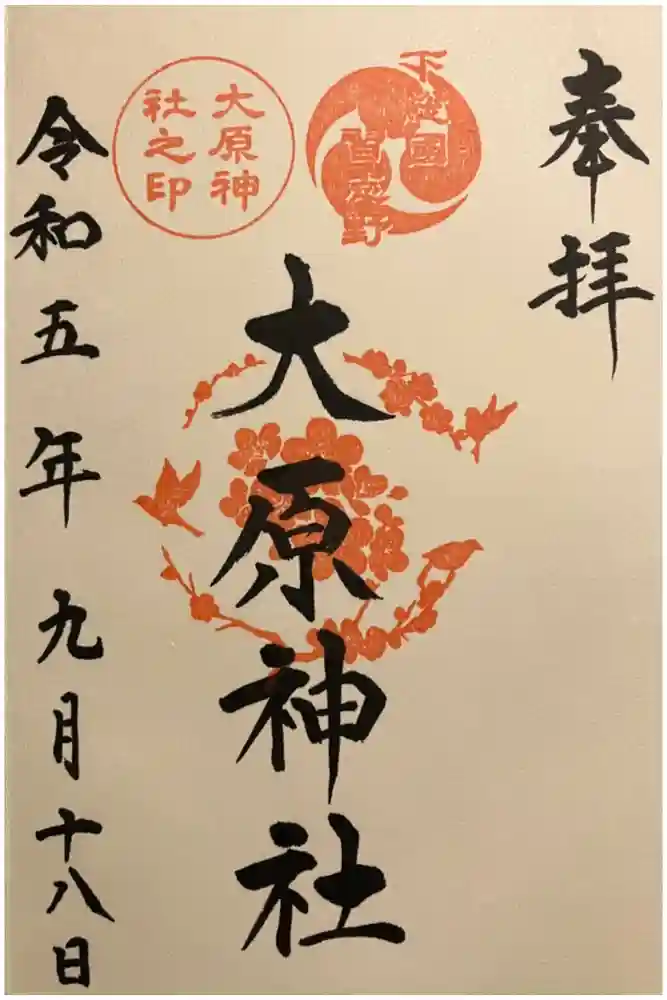 奉拝
下総國
習志野
大原神
社之印
大原神社
令和五年九月十八日